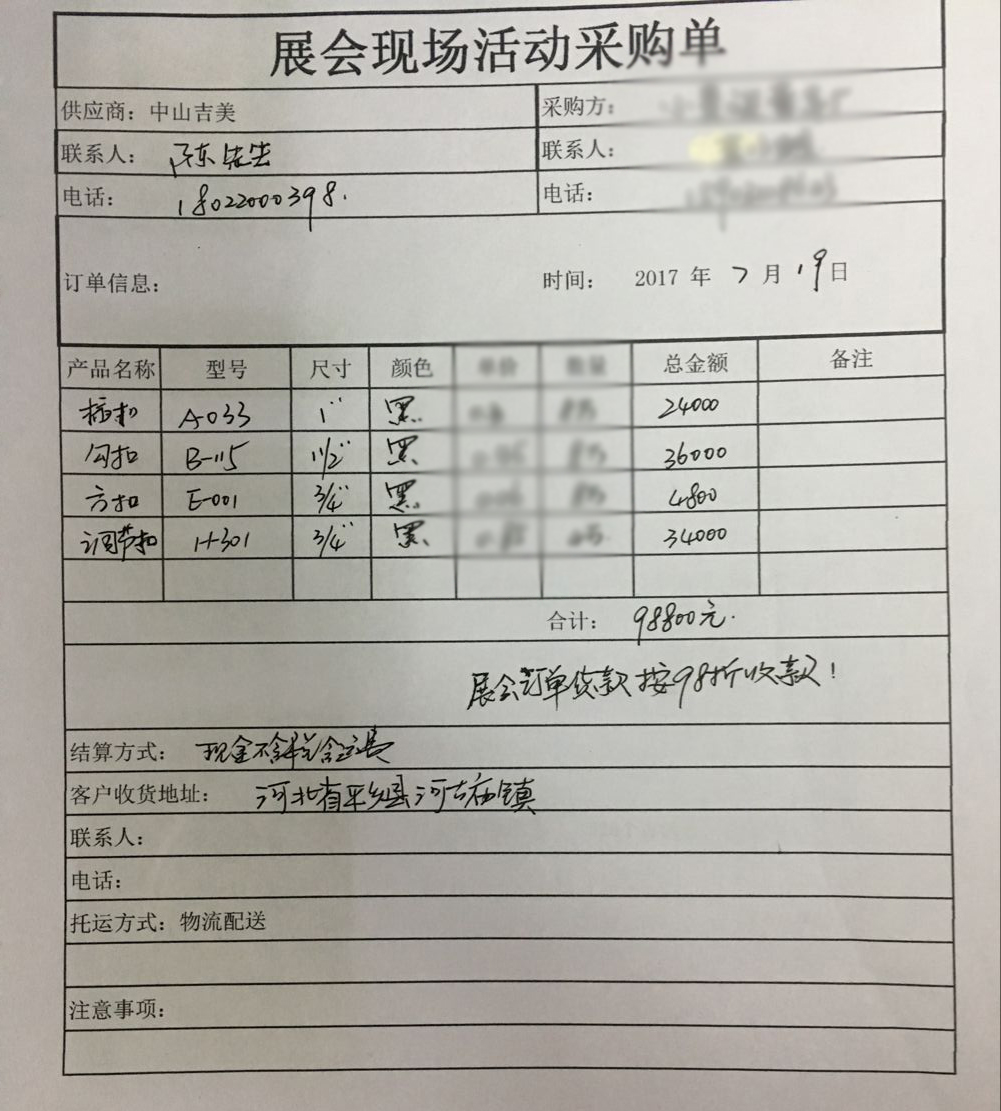 展会现场活动采购单
供应商：中山吉美 采购方：
联系人：陈先生 联系人：
电话：18022000398. 电话：
订单信息： 时间： 2017 年 7 月 19 日
产品名称 型号 尺寸 颜色 单价 数量 总金额 备注
插扣 A-033 1" 黑 24000
勾扣 B-115 1 1/2" 黑 36000
方扣 E-001 3/4" 黑 4800
调节扣 H-301 3/4" 黑 34000
合计： 98800元.
展会订单货款按98折收款！
结算方式： 现金不含税含运费
客户收货地址： 河北省平乡县河古庙镇
联系人：
电话：
托运方式：物流配送
注意事项：